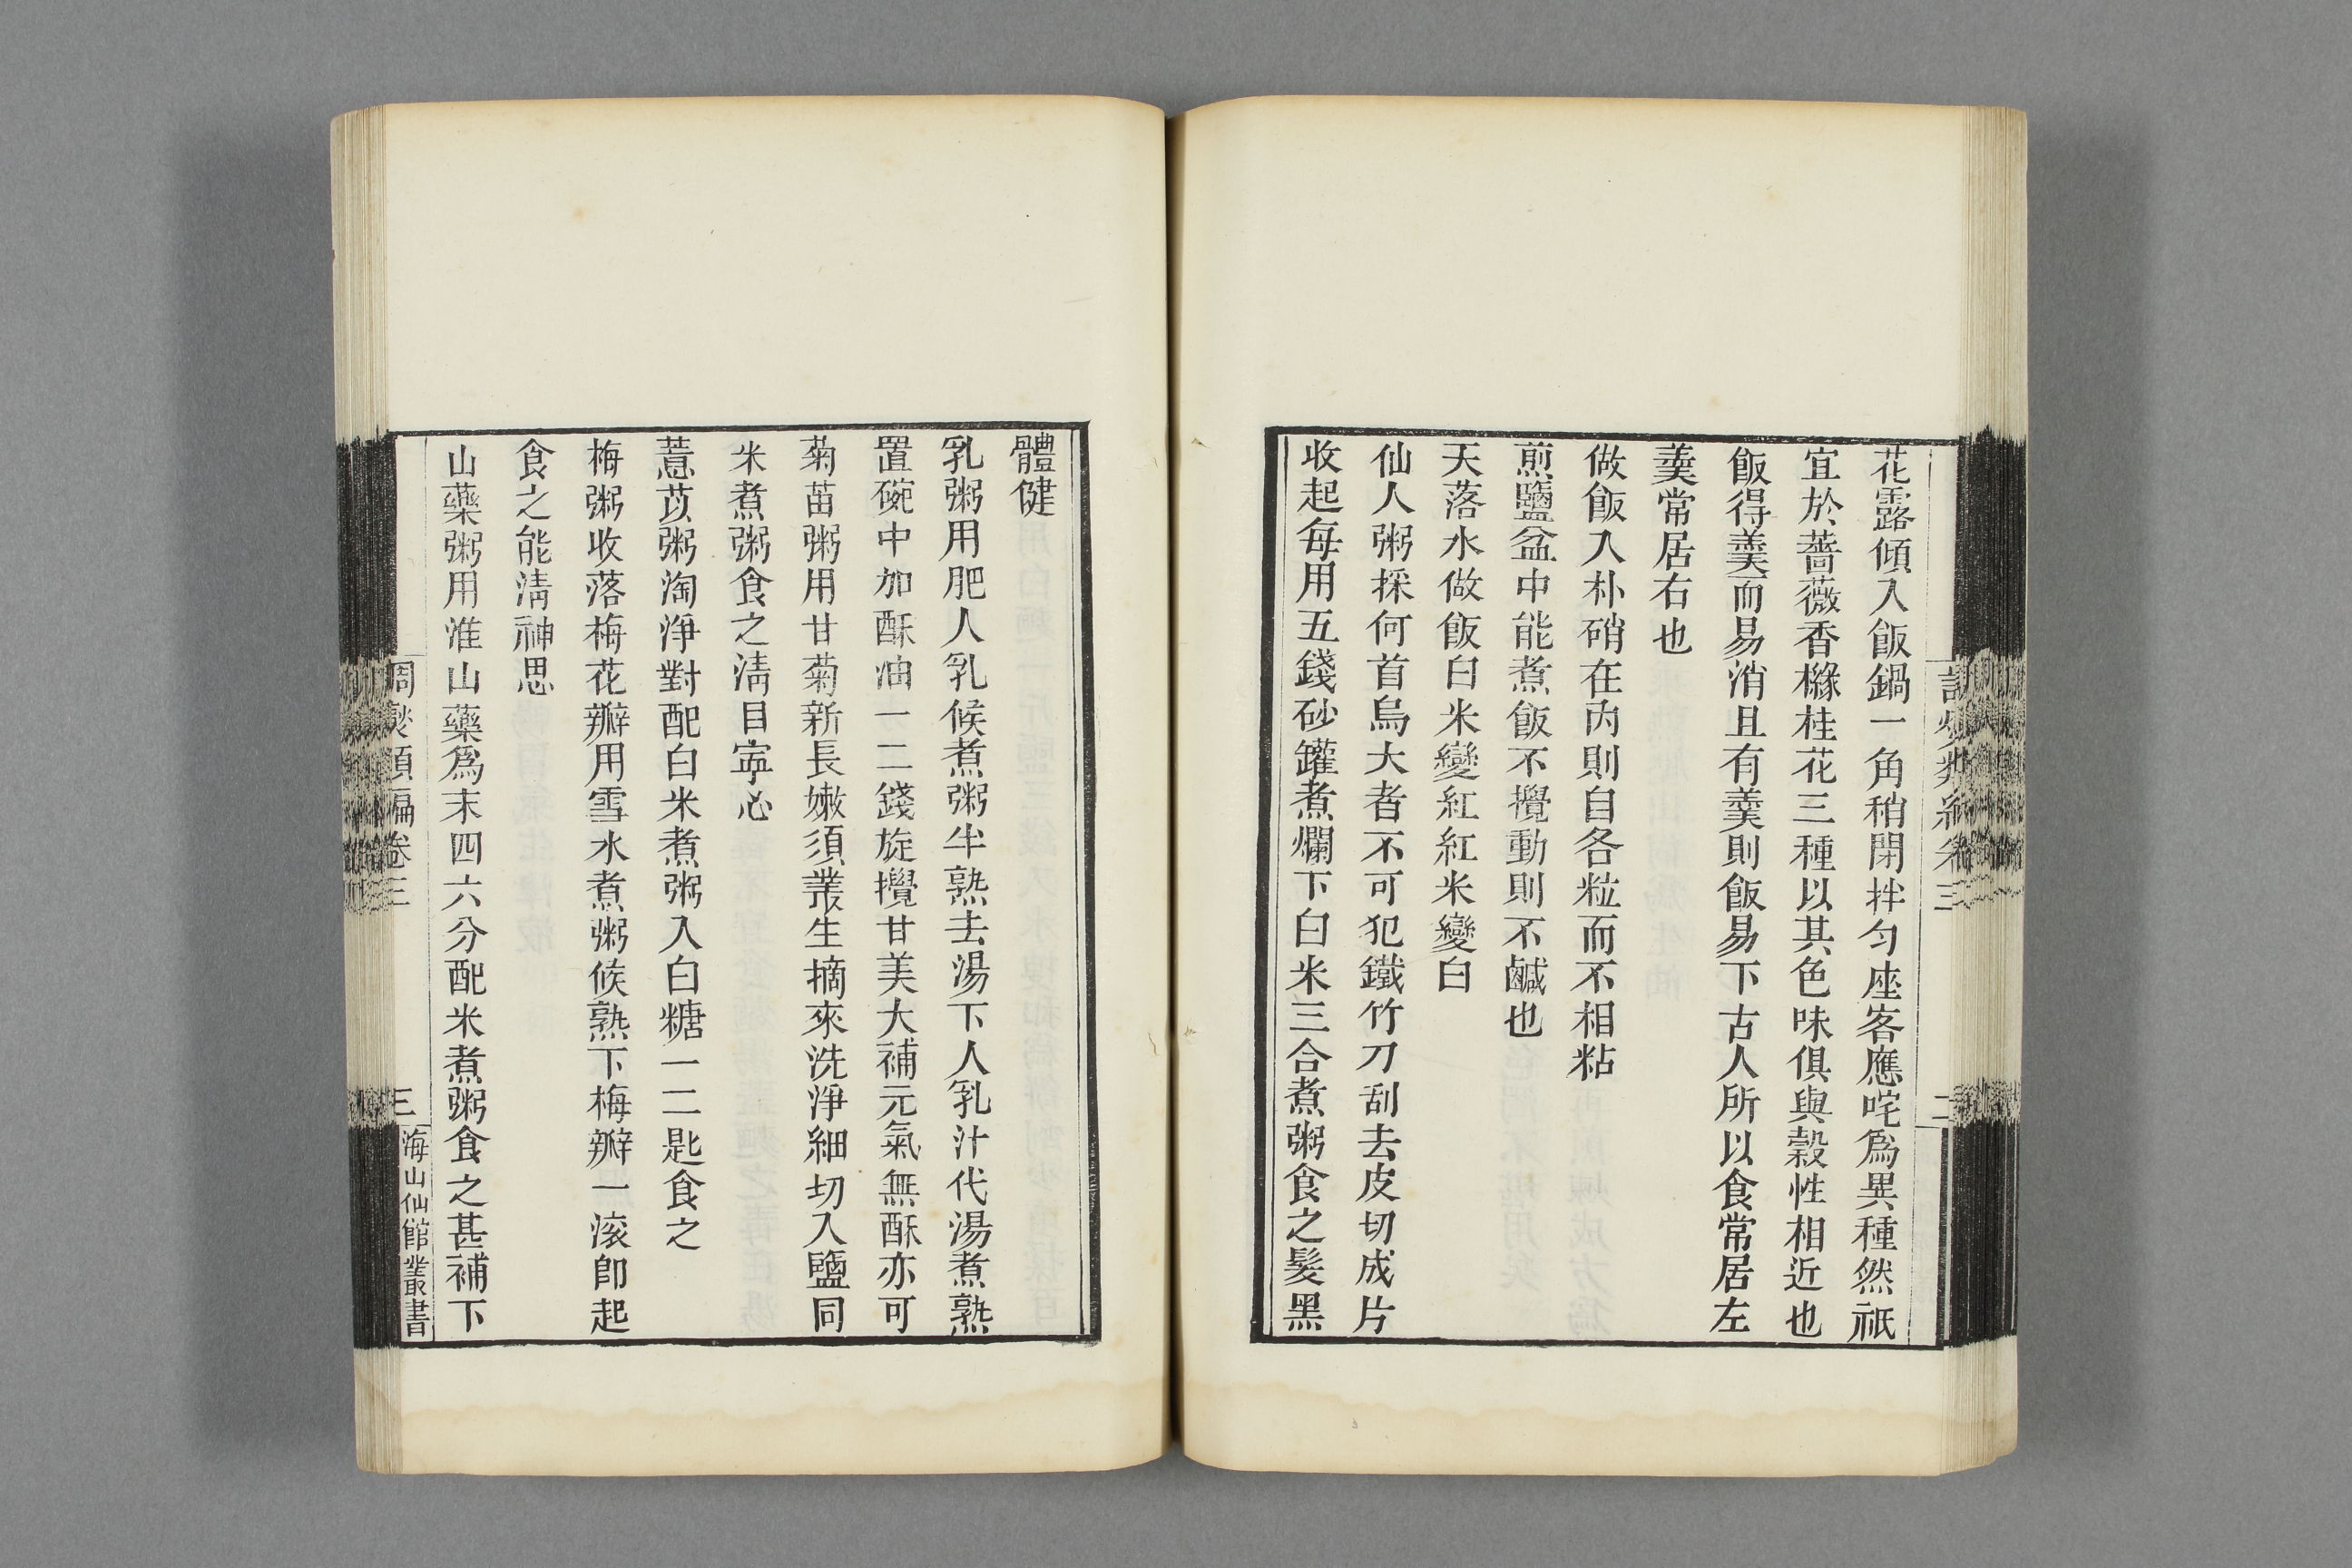 花露傾入飯鍋一角稍閉拌勻座客應咤爲異種然祇
宜於薔薇香櫞桂花三種以其色味俱與穀性相近也
飯得羹而易消且有羹則飯易下古人所以食常居左
羹常居右也
做飯入朴硝在內則自各粒而不相粘
煎鹽盆中能煮飯不攪動則不鹹也
天落水做飯白米變紅紅米變白
仙人粥採何首烏大者不可犯鐵竹刀刮去皮切成片
收起每用五錢砂罐煮爛下白米三合煮粥食之髮黑
體健
乳粥用肥人乳候煮粥半熟去湯下人乳汁代湯煮熟
置碗中加酥油一二錢旋攪甘美大補元氣無酥亦可
菊苗粥用甘菊新長嫩須叢生摘來洗淨細切入鹽同
米煮粥食之淸目寕心
薏苡粥淘淨對配白米煮粥入白糖一二匙食之
梅粥收落梅花瓣用雪水煮粥候熟下梅瓣一滚卽起
食之能淸神思
山藥粥用淮山藥爲末四六分配米煮粥食之甚補下
卷三
三
海山仙館叢書